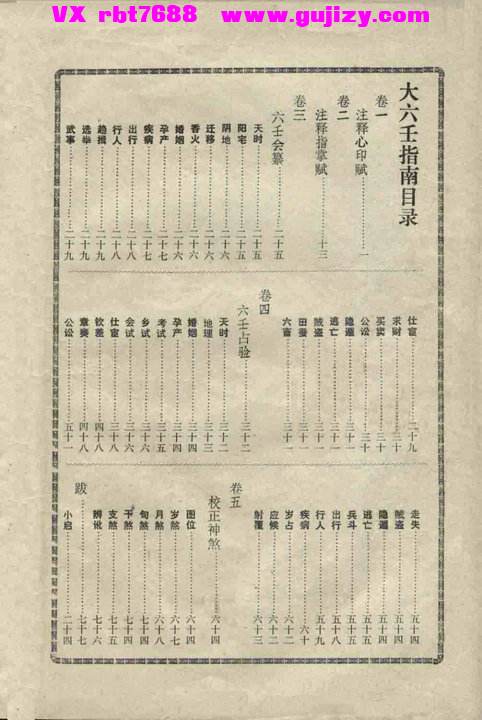 VX rbt7688 www.gujizy.com
大六壬指南目录
卷一
注释心印赋……一
卷二
注释指掌赋……十三
卷三
六壬会纂……二十五
天时……二十五
阳宅……二十五
阴地……二十六
迁移……二十六
香火……二十六
婚姻……二十六
孕产……二十七
疾病……二十七
出行……二十八
行人……二十八
趋揖……二十九
选举……二十九
武事……二十九
仕宦……二十九
求财……三十
买卖……三十
公讼……三十
隐遁……三十一
逃亡……三十一
贼盗……三十一
田蚕……三十一
六畜……三十一
卷四
六壬占验……三十二
天时……三十二
地理……三十三
婚姻……三十四
孕产……三十四
考试……三十五
乡试……三十六
会试……三十六
仕宦……三十八
钦差……四十八
章奏……四十八
公讼……五十一
走失……五十四
贼盗……五十四
隐遁……五十四
逃亡……五十四
兵斗……五十五
出行……五十五
行人……五十九
疾病……六十
岁占……六十二
应候……六十二
射覆……六十三
卷五
校正神煞……六十四
图位……六十四
岁煞……六十七
月煞……六十八
旬煞……七十四
干煞……七十四
支煞……七十五
辨讹……七十六
跋……七十七
小启……二十四